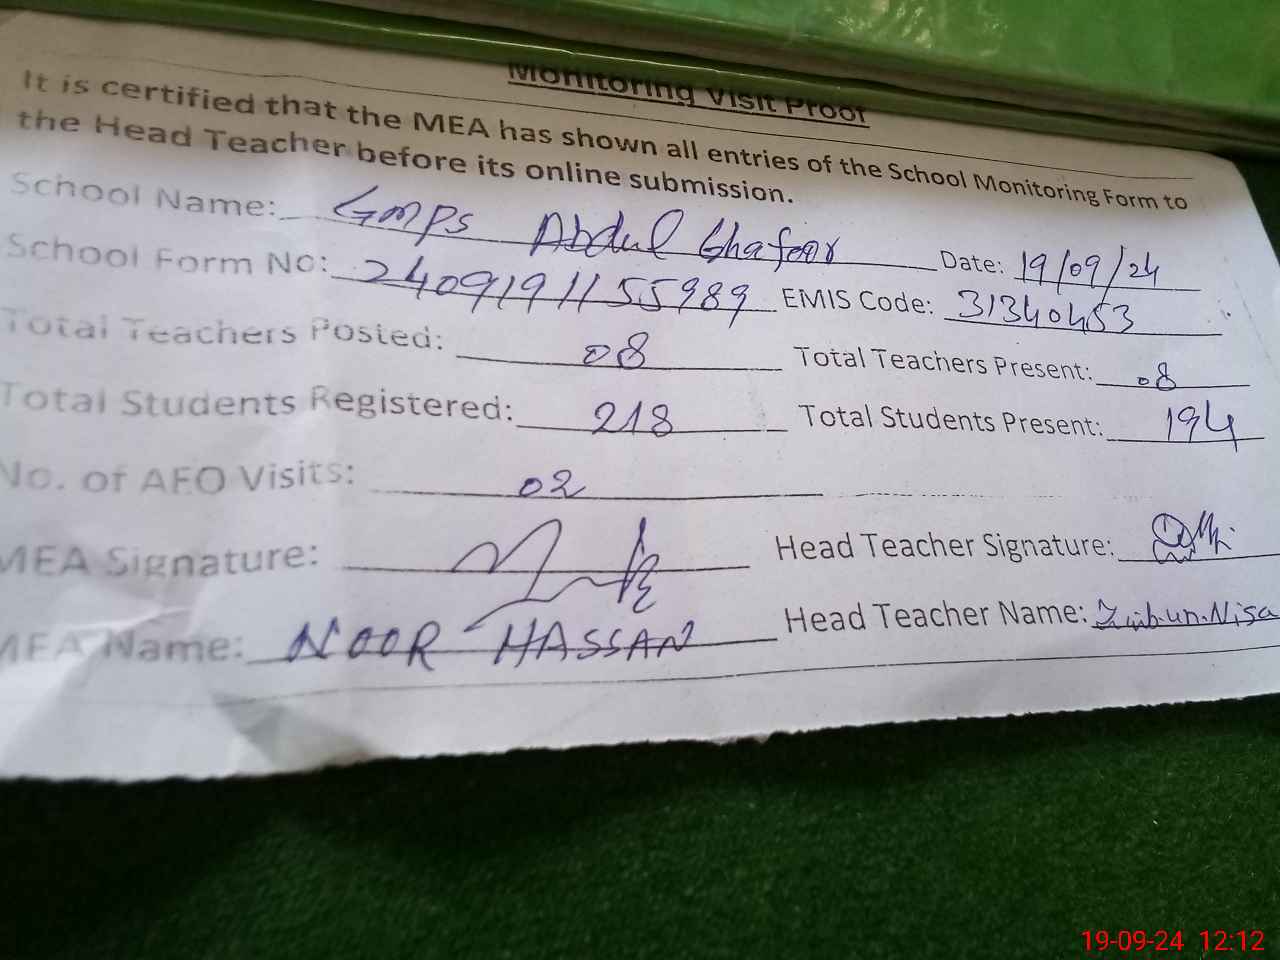 Monitoring Visit Proof
It is certified that the MEA has shown all entries of the School Monitoring Form to
the Head Teacher before its online submission.
School Name: GMPS Abdul Ghafoor Date: 19/09/24
School Form No: 2409191155989 EMIS Code: 31340453
Total Teachers Posted: 08 Total Teachers Present: 08
Total Students Registered: 218 Total Students Present: 194
No. of AEO Visits: 02
MEA Signature: Head Teacher Signature:
MEA Name: NOOR HASSAN Head Teacher Name: Zaib.un.Nisa
19-09-24 12:12